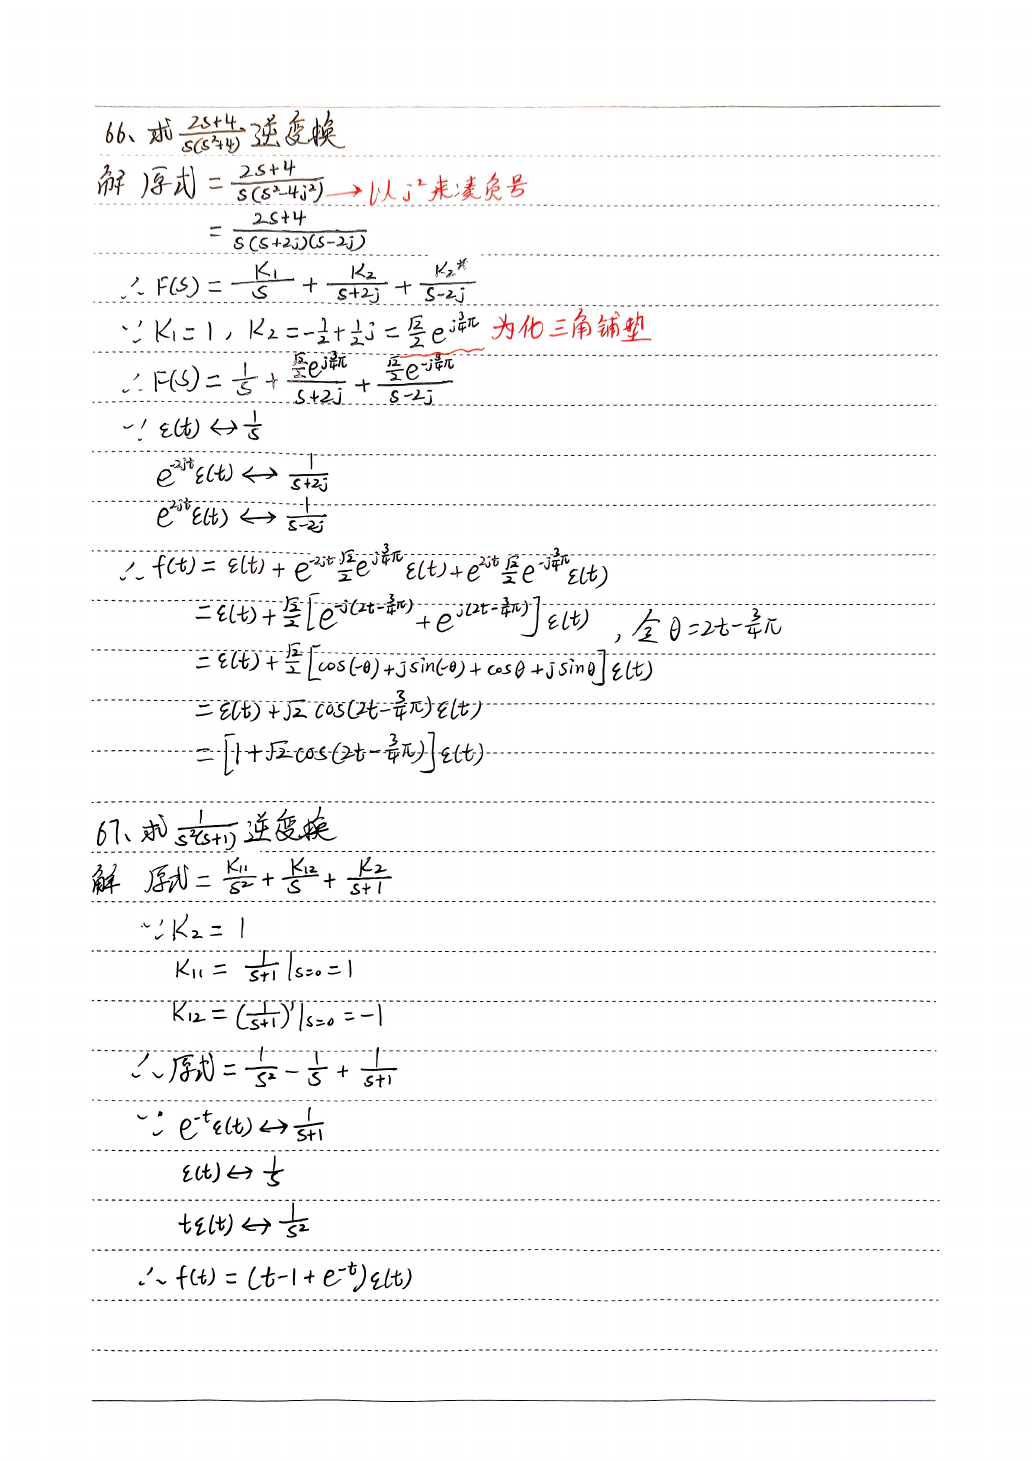 66、求 \frac{2s+4}{s(s²+4)} 逆变换
解 原式 = \frac{2s+4}{s(s²-4j²)} → 以j²来凑负号
= \frac{2s+4}{s(s+2j)(s-2j)}
∴ F(s) = \frac{K₁}{s} + \frac{K₂}{s+2j} + \frac{K₂*}{s-2j}
∵ K₁ = 1, K₂ = -\frac{1}{2} + \frac{1}{2}j = \frac{√2}{2} e^{j\frac{3}{4}π} 为化三角铺垫
∴ F(s) = \frac{1}{s} + \frac{\frac{√2}{2}e^{j\frac{3}{4}π}}{s+2j} + \frac{\frac{√2}{2}e^{-j\frac{3}{4}π}}{s-2j}
∵ ε(t) ↔ \frac{1}{s}
e^{-2jt}ε(t) ↔ \frac{1}{s+2j}
e^{2jt}ε(t) ↔ \frac{1}{s-2j}
∴ f(t) = ε(t) + e^{-2jt}\frac{√2}{2}e^{j\frac{3}{4}π}ε(t) + e^{2jt}\frac{√2}{2}e^{-j\frac{3}{4}π}ε(t)
= ε(t) + \frac{√2}{2}[e^{-j(2t-\frac{3}{4}π)} + e^{j(2t-\frac{3}{4}π)}]ε(t) , 令 θ = 2t-\frac{3}{4}π
= ε(t) + \frac{√2}{2}[cos(-θ) + jsin(-θ) + cosθ + jsinθ]ε(t)
= ε(t) + √2 cos(2t-\frac{3}{4}π)ε(t)
= [1 + √2cos(2t-\frac{3}{4}π)]ε(t)
67、求 \frac{1}{s²(s+1)} 逆变换
解 原式 = \frac{K₁₁}{s²} + \frac{K₁₂}{s} + \frac{K₂}{s+1}
∵ K₂ = 1
K₁₁ = \frac{1}{s+1}|s=0 = 1
K₁₂ = (\frac{1}{s+1})'|s=0 = -1
∴ 原式 = \frac{1}{s²} - \frac{1}{s} + \frac{1}{s+1}
∵ e^{-t}ε(t) ↔ \frac{1}{s+1}
ε(t) ↔ \frac{1}{s}
tε(t) ↔ \frac{1}{s²}
∴ f(t) = (t-1+e^{-t})ε(t)